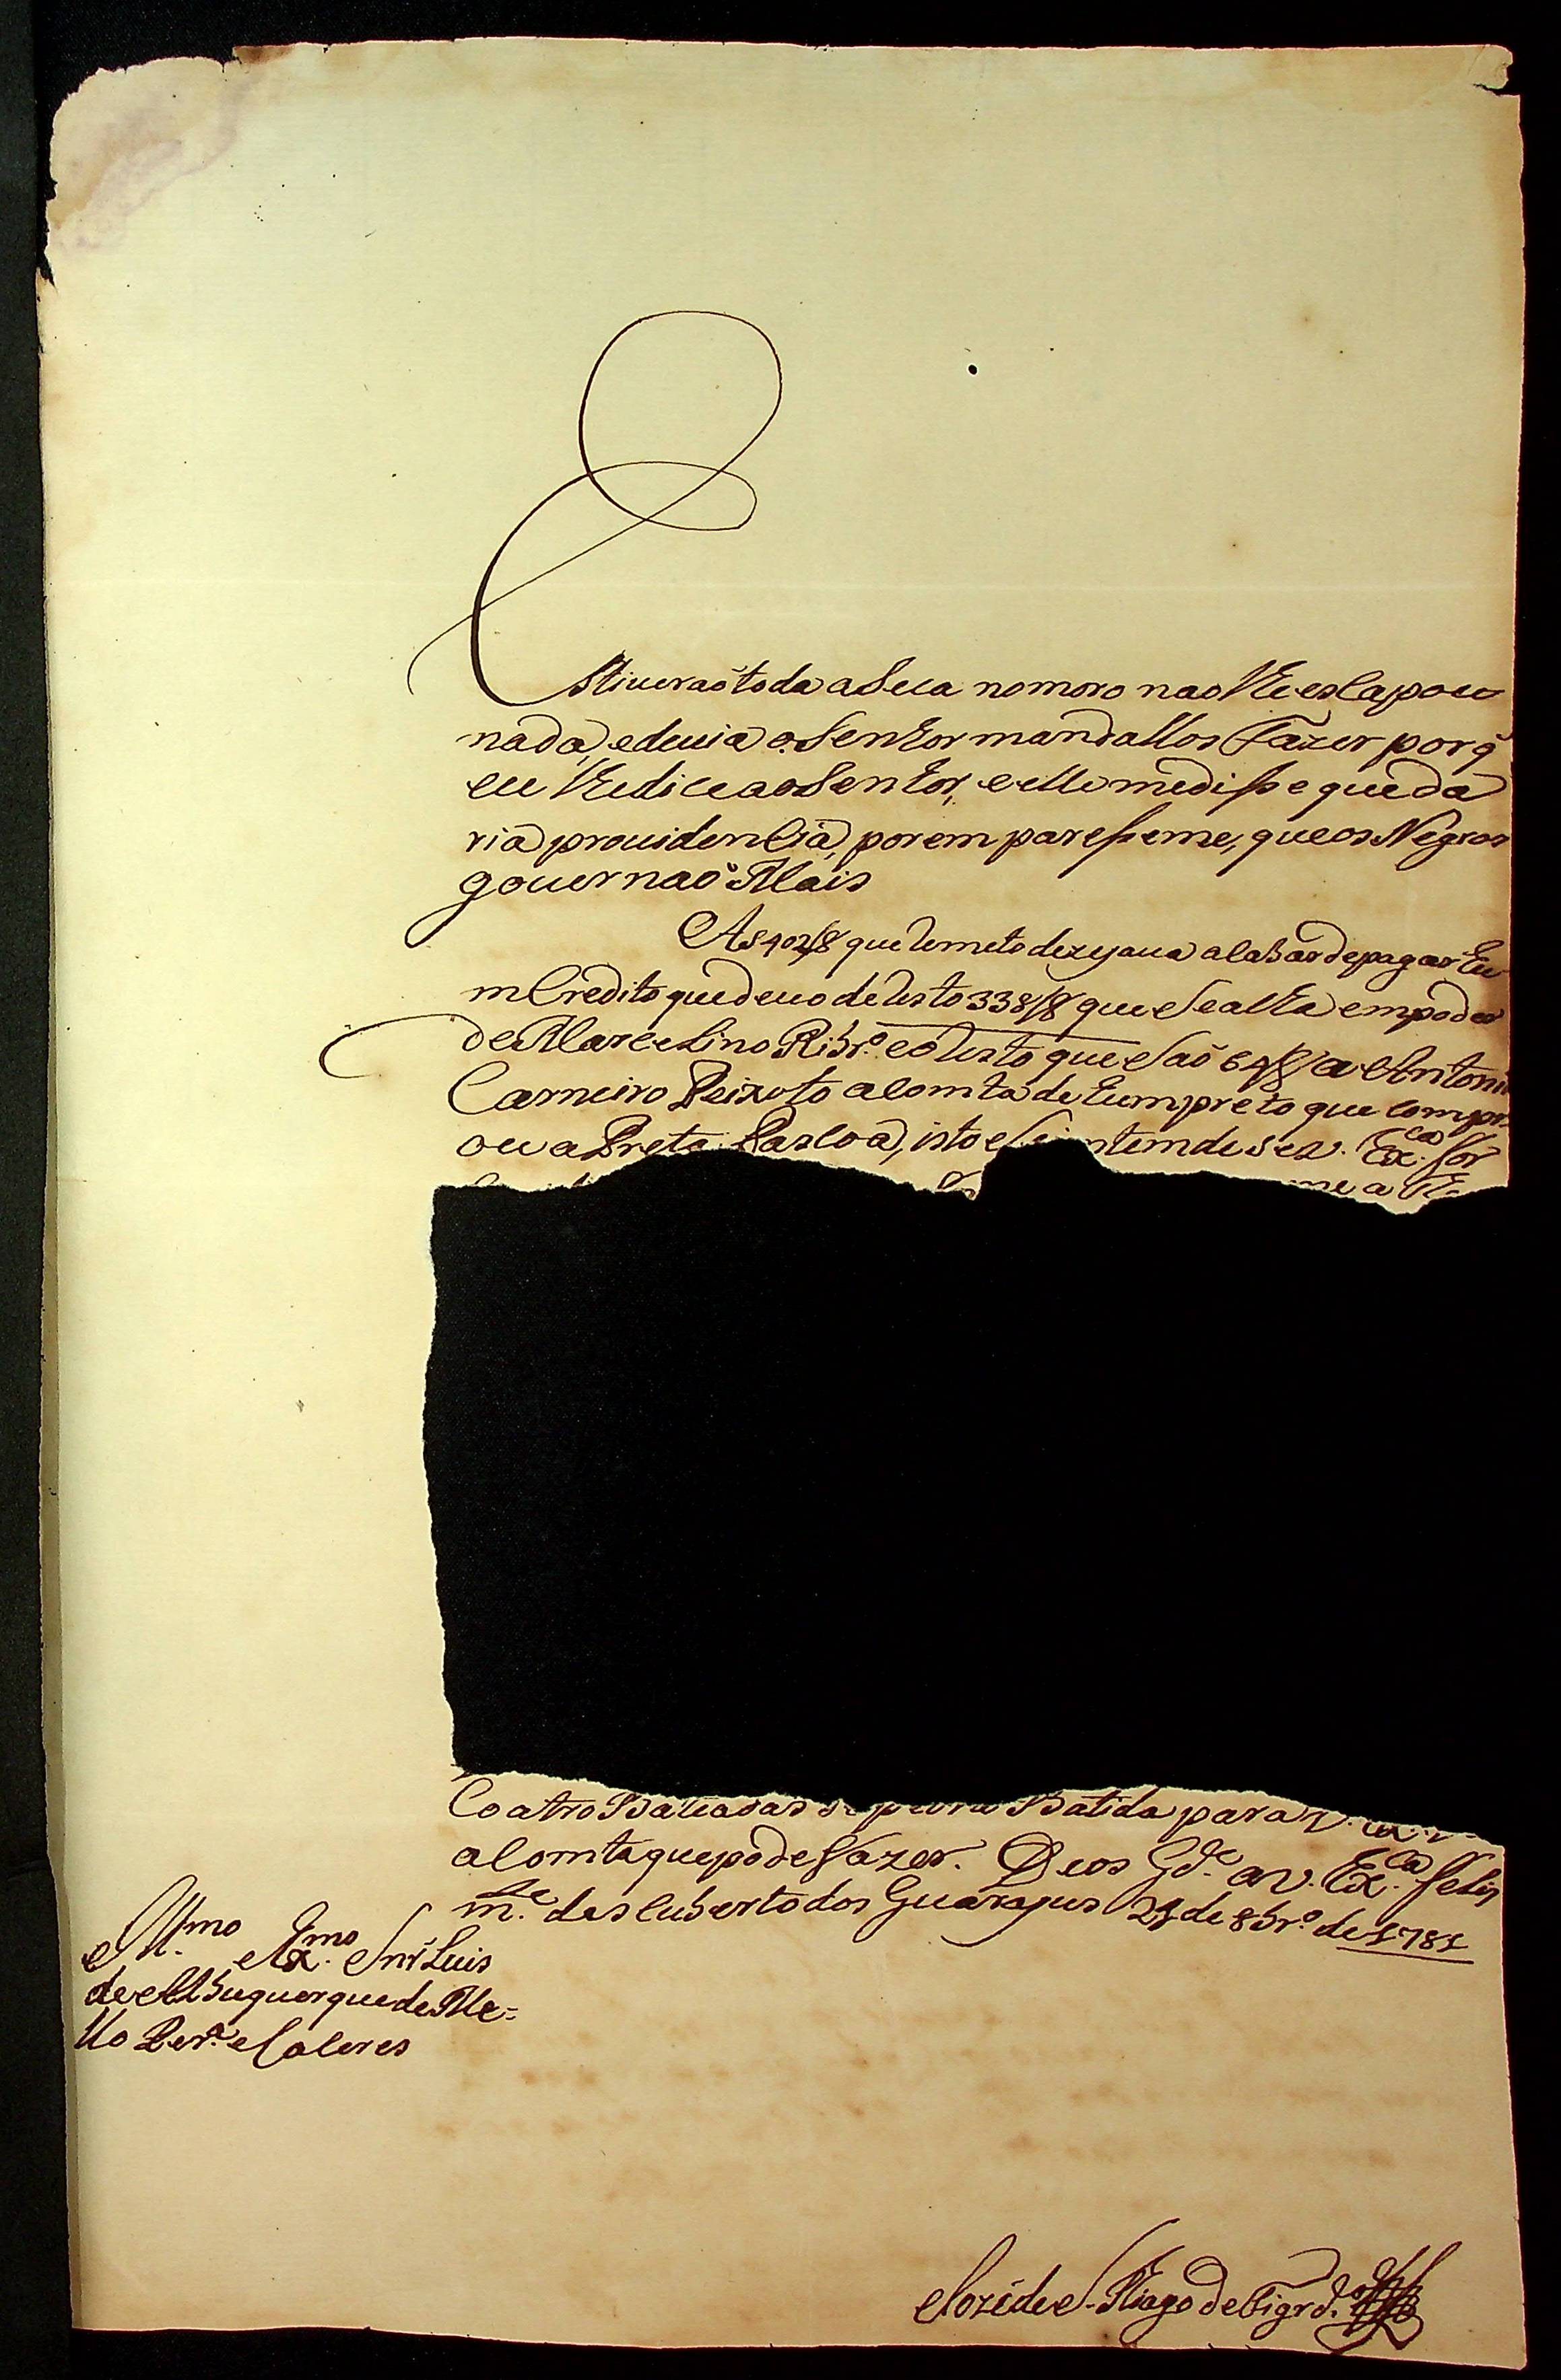 Estiueraõ toda a Seca no moro nao lhe escapou
nada, e deuia o Senhor mandallos Fazer por q̃
eu lhe dice ao Senhor, e elle me disse que da
ria prouidencia, porem paresseme, que os Negros
gouernaõ Mais
As 402/8 que remeto dezejaua acabar de pagar hu
m Credito que deuo de resto 338/8 que Se acha em poder
de Marcelino Ribr.º e o resto que Saõ 64/8 a Antonio
Carneiro Peixoto a comta de hum preto que compr
ou a Preta Pascoa, isto Se intemde Se v. Ex.ca for
me a
Coatro Bateadas de pedra Batida para v. Ex.ca
a comta que pode Fazer. Deos G.de a v. Ex.ca felis
m.te descuberto dos Guarajus 21 de 8br.º de 1781
Ill.mo e Ex.mo Snr̃ Luis
de Albuquerque de Me=
llo Per.ª e Caceres
Jozé de S. Tiago de Figrd.º